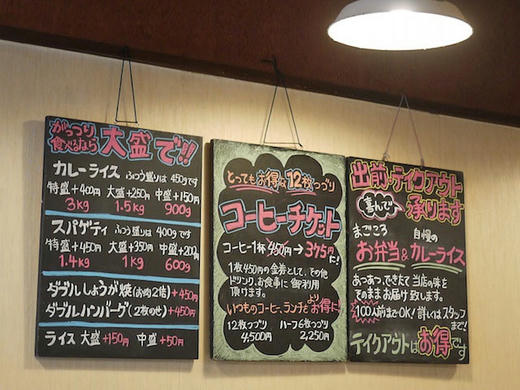 がっつり
食べるなら
大盛で!!
カレーライス ふつう盛りは450gです
特盛+400円 大盛+250円 中盛+150円
3kg 1.5kg 900g
スパゲティ ふつう盛りは400gです
特盛+450円 大盛+350円 中盛+200円
1.4kg 1kg 600g
ダブルしょうが焼(お肉2倍)+450円
ダブルハンバーグ(2枚のせ)+450円
ライス 大盛+150円 中盛+50円
とってもお得な12枚つづり
コーヒーチケット
コーヒー1杯 450円→375円に!
1枚450円の金券として、その他
ドリンク、お食事に御利用
頂けます。
いつものコーヒー、ランチをよりお得に!
12枚つづり ハーフ6枚つづり
4,500円 2,250円
出前・テイクアウト
喜んで♪ 承ります
まごころ 自慢の
お弁当&カレーライス
あつあつ、できたて当店の味を
そのままお届け致します。
100人前までOK!詳しくはスタッフ
まで!
テイクアウトはお得です